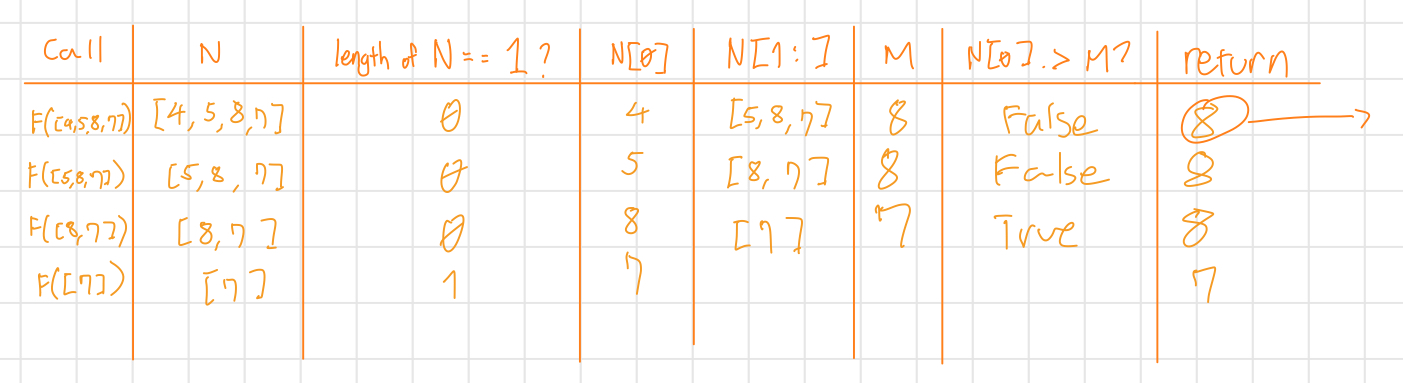 Call N length of N == 1? N[0] N[1:] M N[0] > M? return
F([4,5,8,7]) [4,5,8,7] 0 4 [5,8,7] 8 False 8
F([5,8,7]) [5,8,7] 0 5 [8,7] 8 False 8
F([8,7]) [8,7] 0 8 [7] 7 True 8
F([7]) [7] 1 7 7